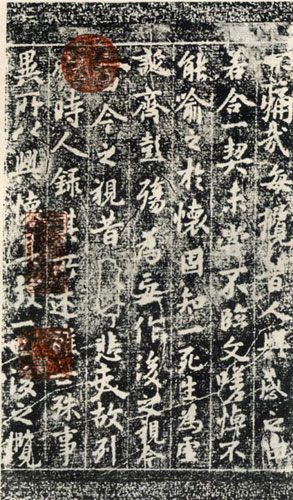 痛哉每攬昔人興感之由
若合一契未嘗不臨文嗟悼不
能喻之於懷固知一死生為虛
誕齊彭殤為妄作後之視今
今之視昔悲夫故列
時人錄其所述殊事
異所以興懷其致一也後之攬